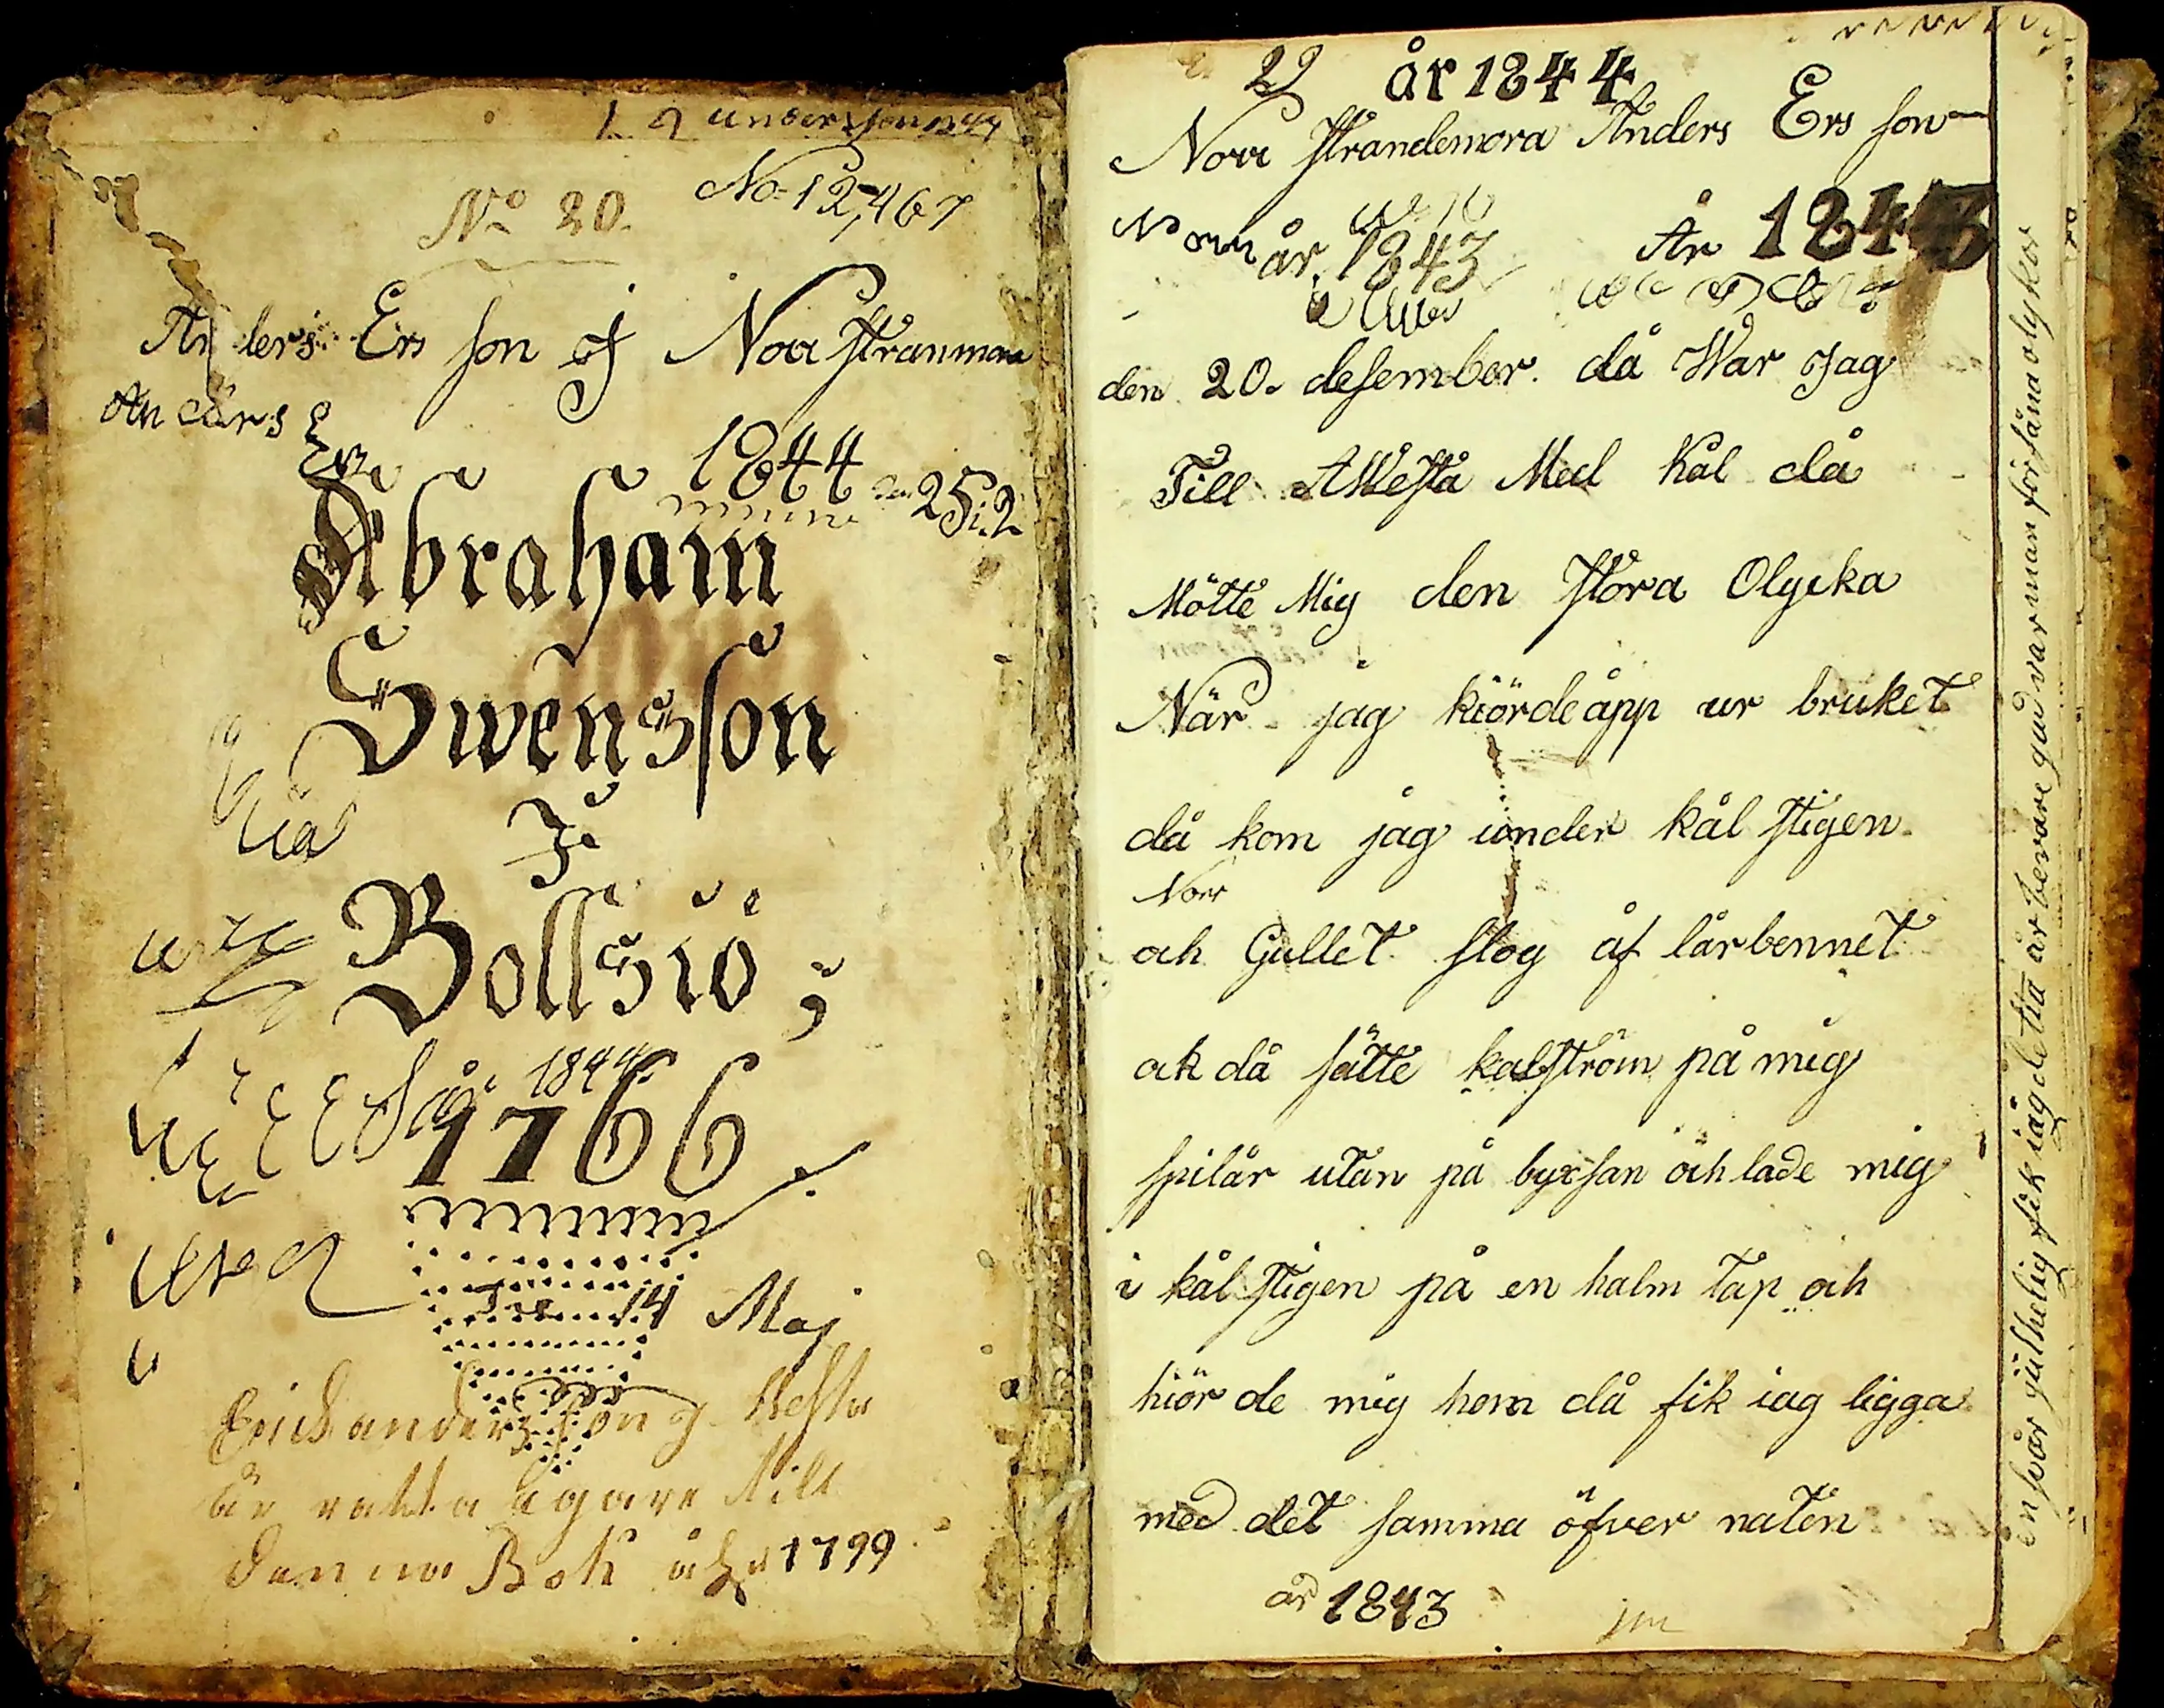 No 20.
No 12,467
Anders Ers son i Norr stranmora
An cärs E
1844
25.2
Abraham
Swensson
I
Bollsiö
år 1844
1766
14 Maj
Erich anderzson
är rätta ägare till
denna Bok åhr 1799
22 år 1844
Norr strandemora Anders Ers son
Norr år 1843 År 1843
den 20. desember. då War Jag
Till AWesta Med kål då
Mötte Mig den stora Olycka
När jag kiörde åpp ur bruket
då kom jag under kål stigen
Norr
och Gullet slog åf lårbennet
ok då sätte kålström på mig
spilår utan på byxsan och lade mig
i kål stigen på en halm tap och
hiör de mig hem då fik iag ligga
med det samma öfver naten
år 1843
en svår julhelig fik iag detta år bevare gud var man för såna olykor